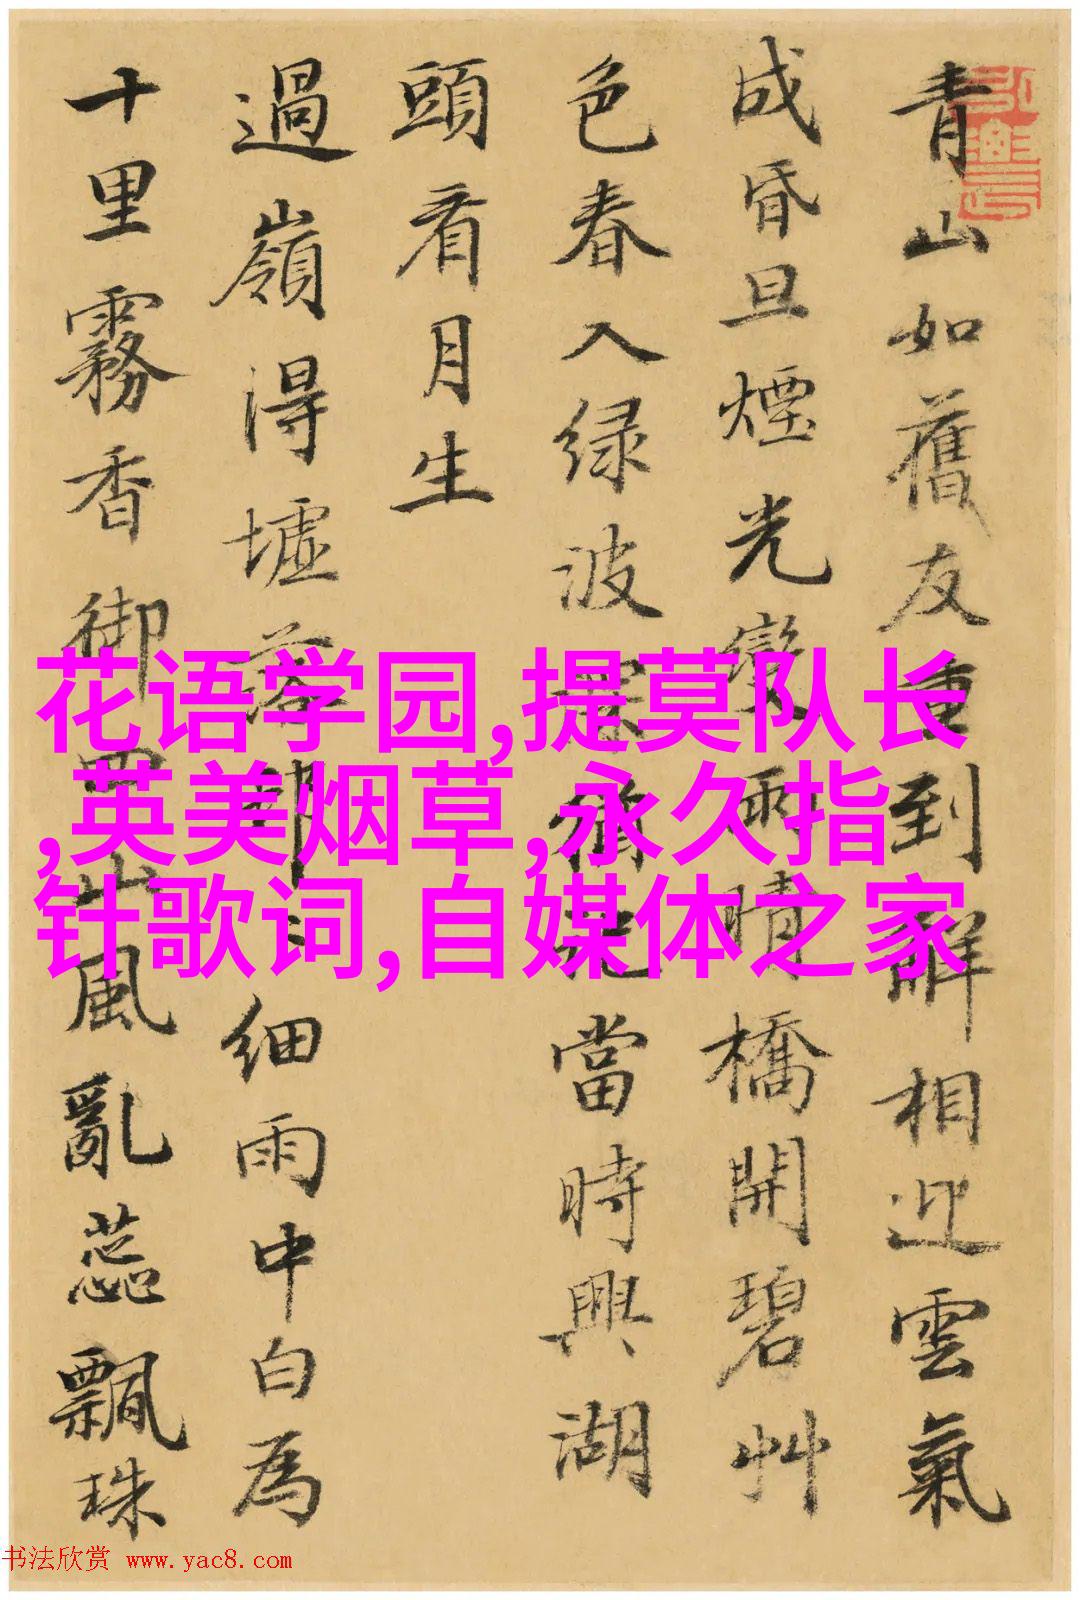 青山如舊友重到解相迎雲氣
成昏旦煙光變雨晴橋開碧艸
色春入绿波當時興湖
頭看月生
過嶺得墟落細雨中白為
十里霧香御四山風亂蕊飄珠
花语学园,提莫队长
,英美烟草,永久指
针歌词,自媒体之家
书法欣赏 www.yac8.com